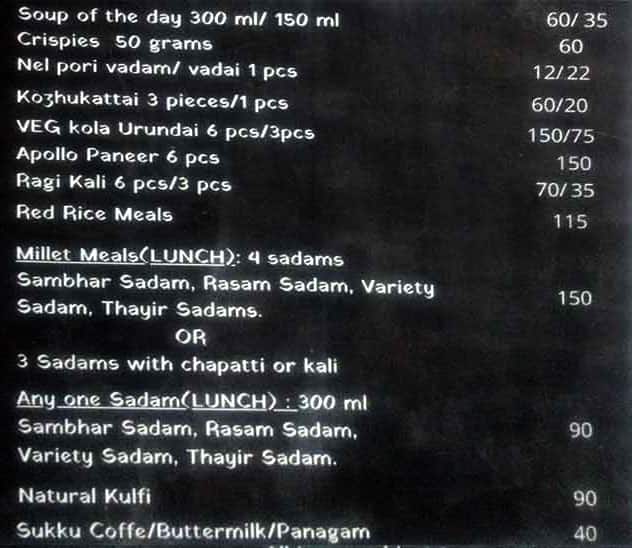 Soup of the day 300 ml/ 150 ml 60/ 35
Crispies 50 grams 60
Nel pori vadam/ vadai 1 pcs 12/22
Kozhukattai 3 pieces/1 pcs 60/20
VEG kola Urundai 6 pcs/3pcs 150/75
Apollo Paneer 6 pcs 150
Ragi Kali 6 pcs/3 pcs 70/ 35
Red Rice Meals 115
Millet Meals(LUNCH): 4 sadams
Sambhar Sadam, Rasam Sadam, Variety
Sadam, Thayir Sadams. 150
OR
3 Sadams with chapatti or kali
Any one Sadam(LUNCH) : 300 ml
Sambhar Sadam, Rasam Sadam, 90
Variety Sadam, Thayir Sadam.
Natural Kulfi 90
Sukku Coffe/Buttermilk/Panagam 40